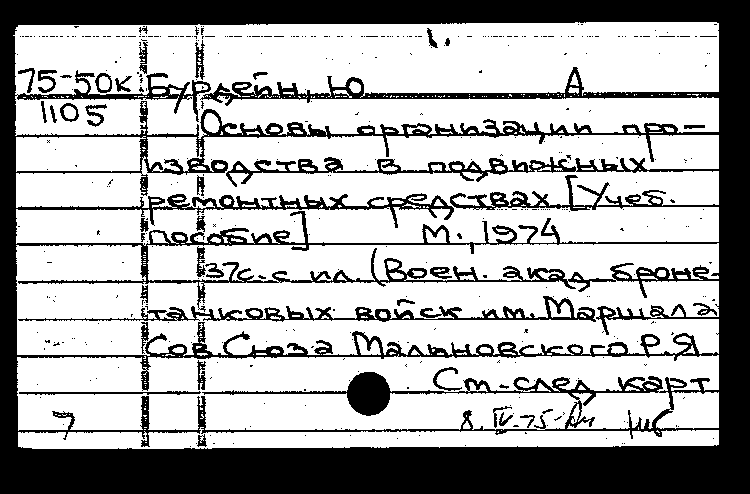 1.
75-50к Бурдейн, Ю А
1105
Основы организации про-
изводства в подвижных
ремонтных средствах [Учеб.
пособие] М., 1974
37с. с ил. (Воен. акад. броне-
танковых войск им. Маршала
Сов. Союза Малиновского Р.Я.
См. след. карт
7 8.IV-75-